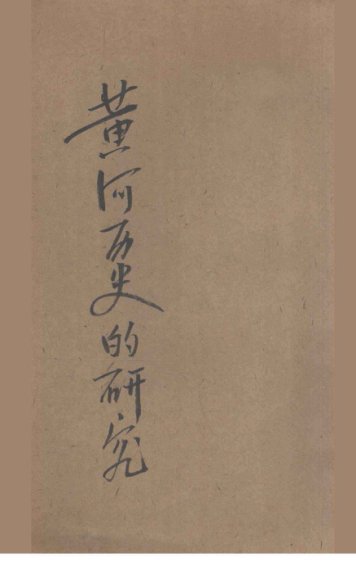 黄河历史的研究